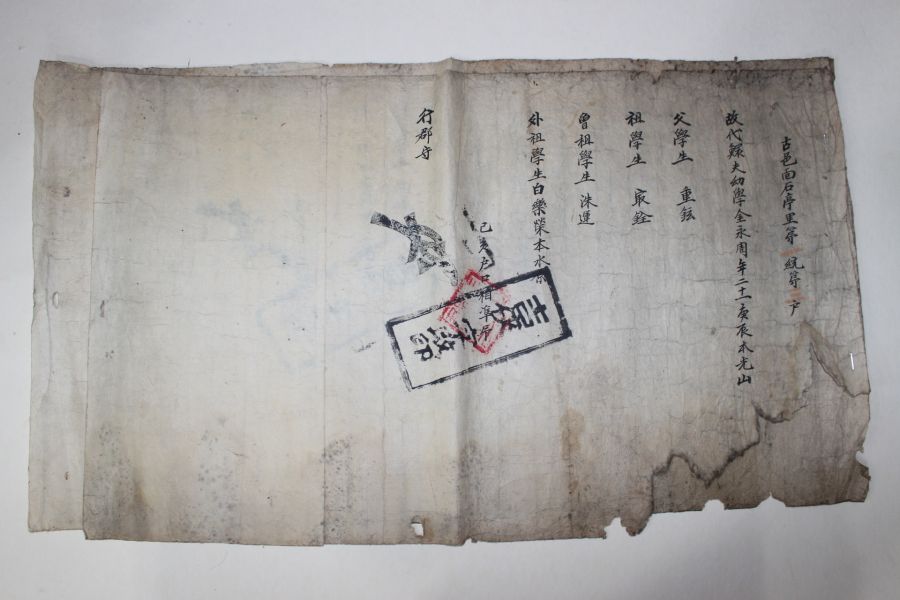 古邑面石亭里第一統第一戶
故代鰥夫幼學金永周年二十庚辰本光山
父學生 重鉉
祖學生
曾祖學生 洙運
外祖學生白樂榮本水原
己亥戶口相準印
行郡守